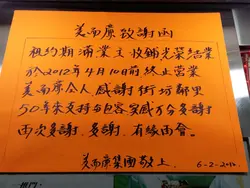 美而廉致謝函
租約期滿業主收舖光榮結業
於2012年4月10日前終止營業
美而廉仝人感謝街坊鄰里
50年來支持与包容实感万分多謝
再次多謝多謝有緣再會
美而廉集團敬上
6-2-2012